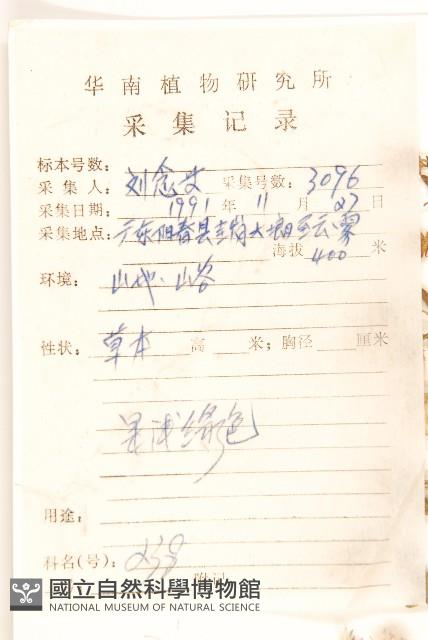 华南植物研究所
采集记录
标本号数：
采集人：刘念 采集号数：3096
采集日期：1991年11月27日
采集地点：广东阳春县
海拔 400 米
环境：山地·山谷
性状：草本 高 米；胸径 厘米
果浅绿色
用途：
科名(号)：
附记
國立自然科學博物館
NATIONAL MUSEUM OF NATURAL SCIENCE